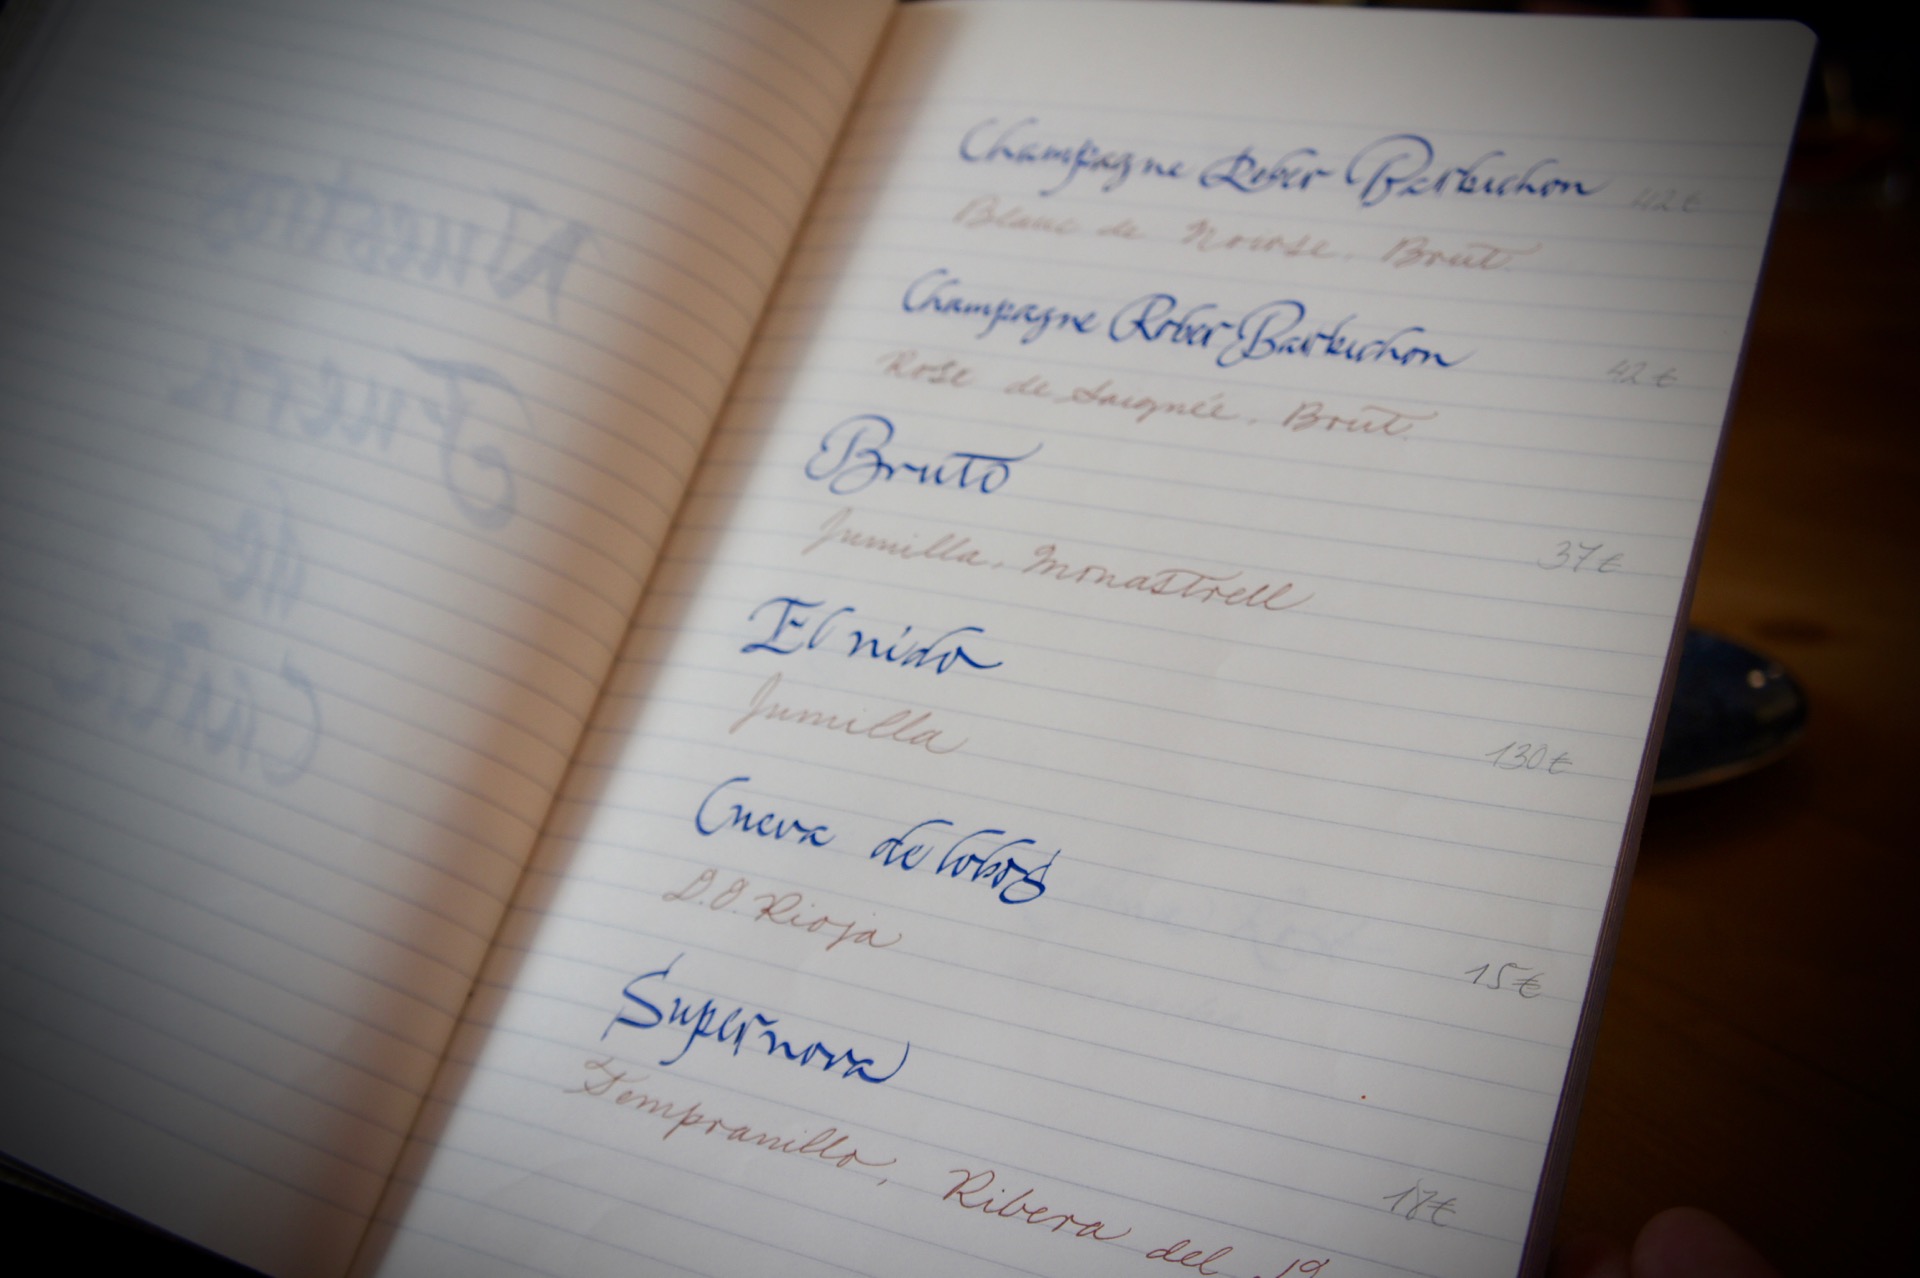 Nuestros
Fuera
de
Carta
Champagne Rober Barbichon 42€
Blanc de Noirse. Brut.
Champagne Rober Barbichon 42€
Rose de Saignée. Brut.
Bruto
37€
Jumilla. Monastrell
El nido
130€
Jumilla
Cueva de lobos
15€
D.O. Rioja
Supernova
Tempranillo, Ribera del